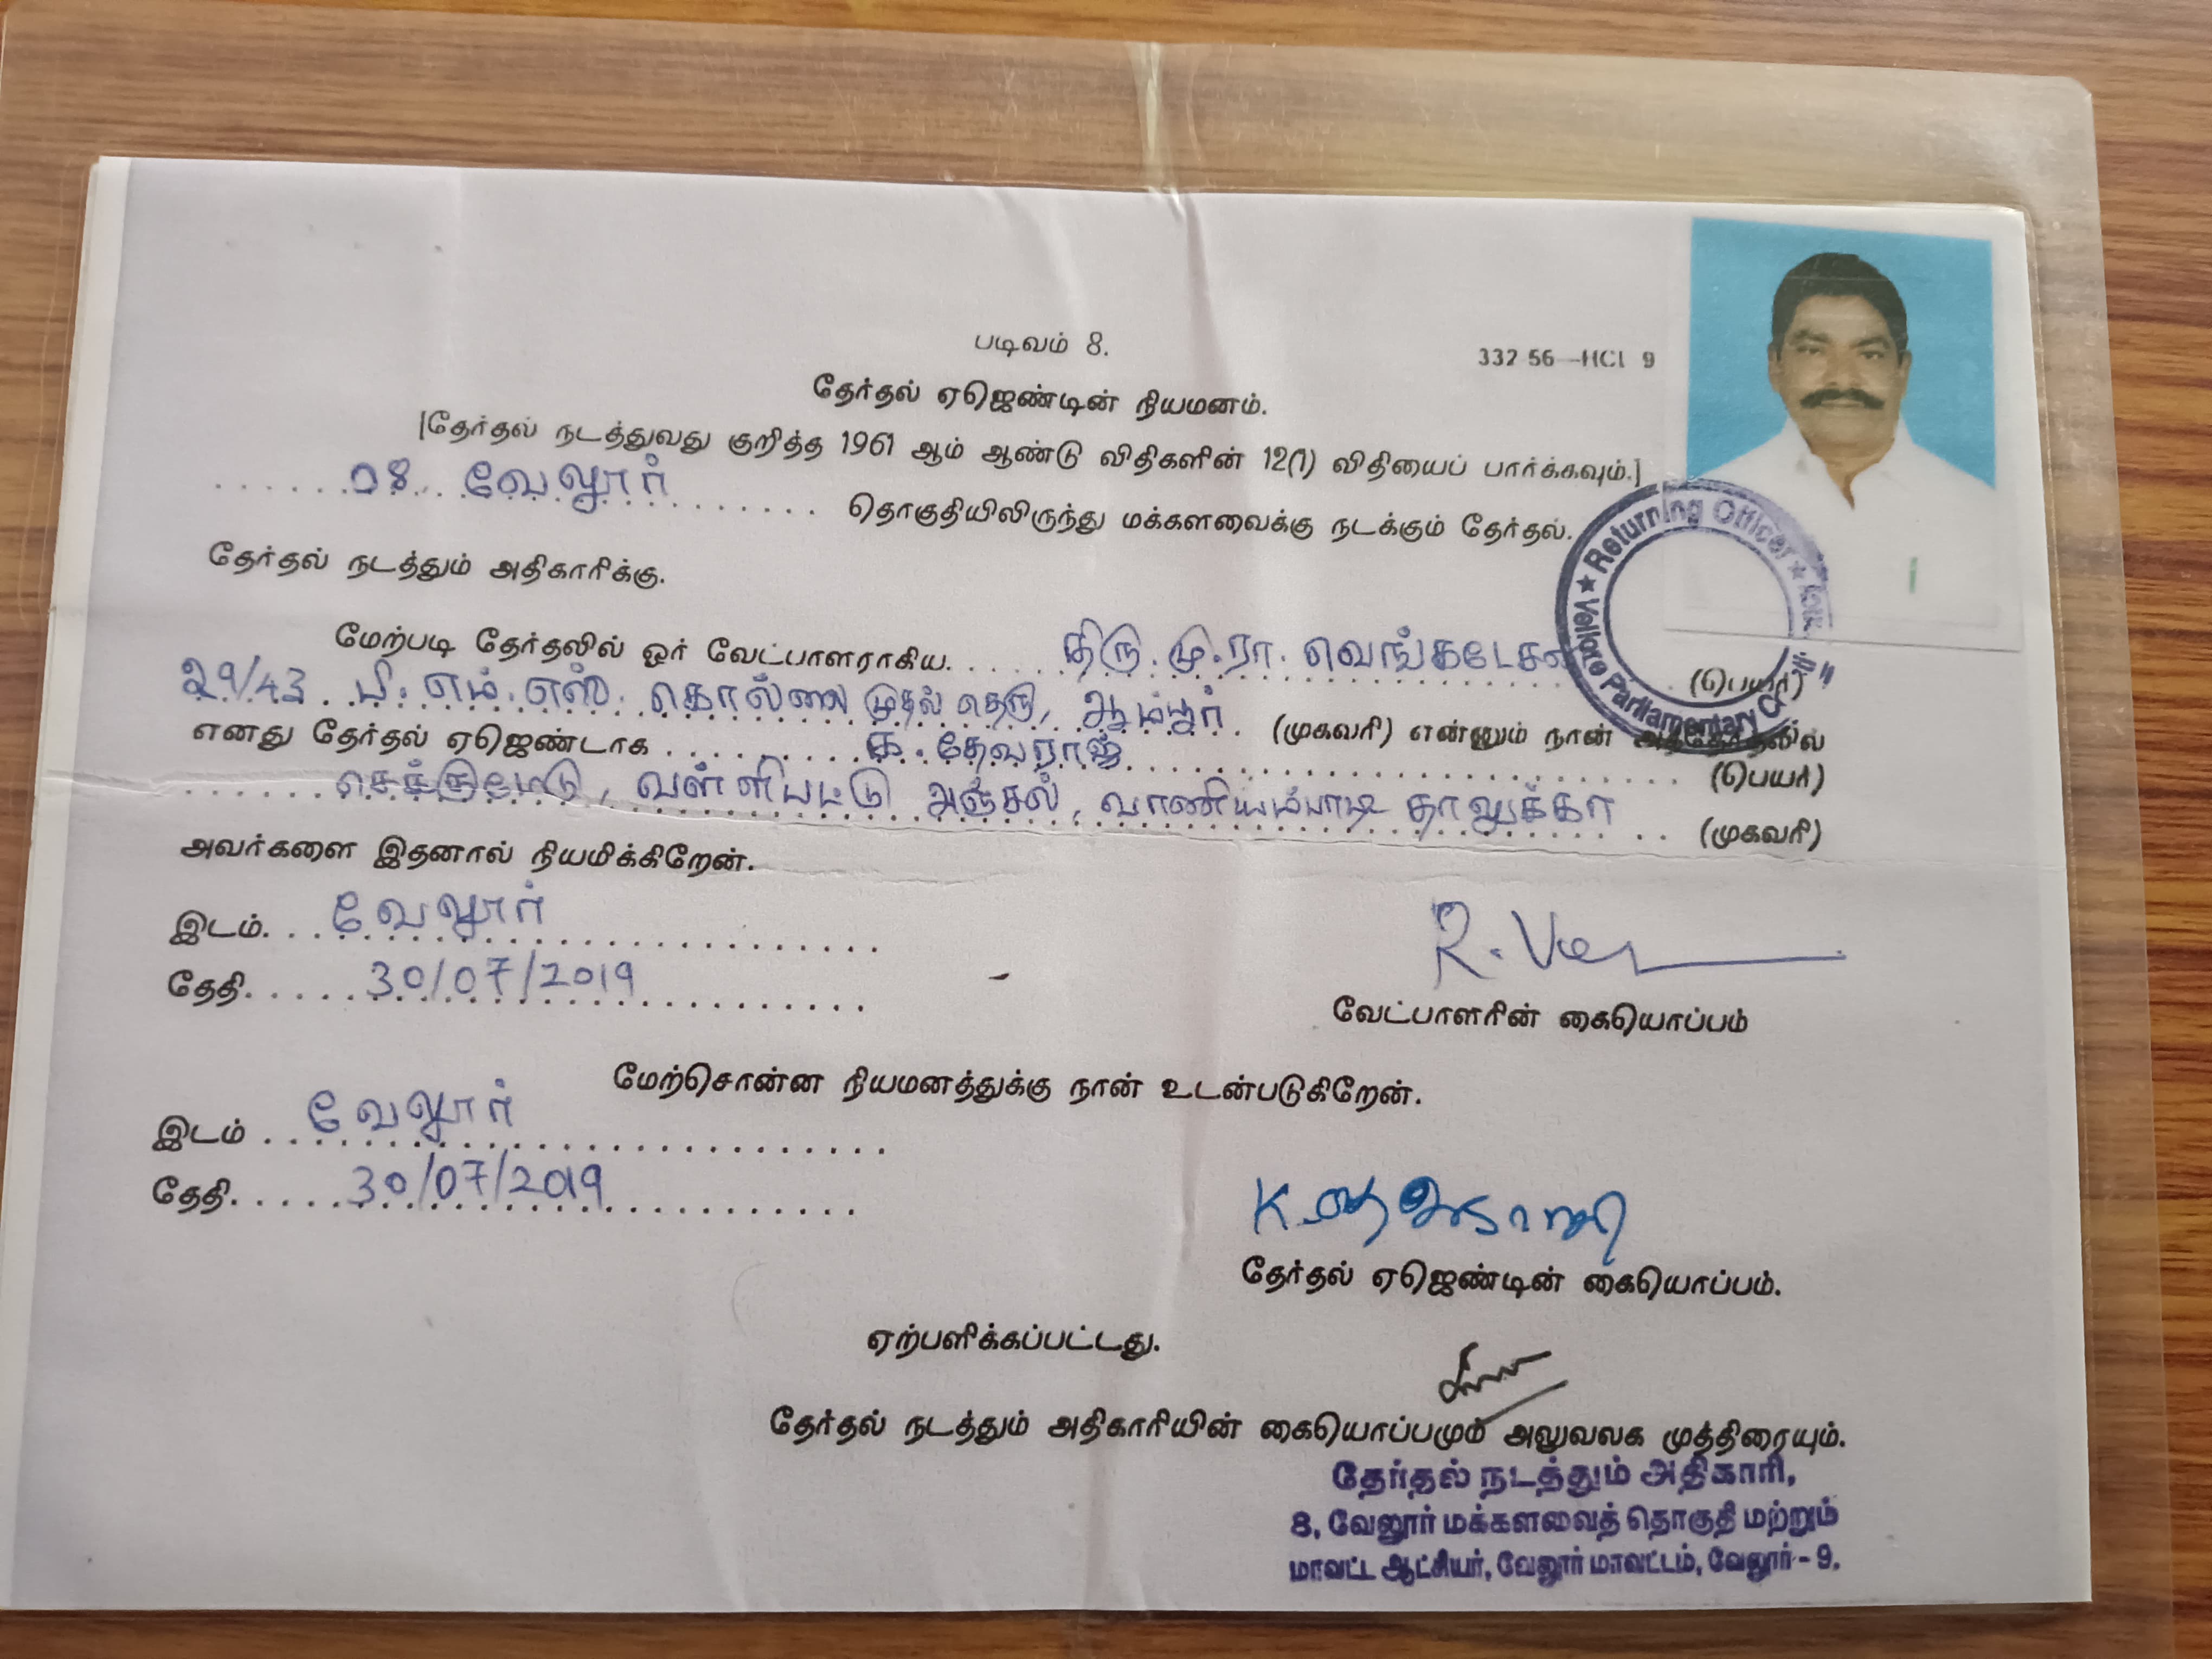 படிவம் 8.
332 56—HCI 9
தேர்தல் ஏஜெண்டின் நியமனம்.
[தேர்தல் நடத்துவது குறித்த 1961 ஆம் ஆண்டு விதிகளின் 12(1) விதியைப் பார்க்கவும்.]
08 வேலூர் தொகுதியிலிருந்து மக்களவைக்கு நடக்கும் தேர்தல்.
தேர்தல் நடத்தும் அதிகாரிக்கு.
மேற்படி தேர்தலில் ஓர் வேட்பாளராகிய திரு. மு.ரா. வெங்கடேசன் (பெயர்)
29/43 பி. எம். எஸ். கொல்லை முதல் தெரு, ஆம்பூர் (முகவரி) என்னும் நான் அத்தேர்தலில்
எனது தேர்தல் ஏஜெண்டாக க. தேவராஜ் (பெயர்)
செக்குமேடு, வள்ளிபட்டு அஞ்சல், வாணியம்பாடி தாலுக்கா (முகவரி)
அவர்களை இதனால் நியமிக்கிறேன்.
இடம். வேலூர்
தேதி. 30/07/2019
R. Ve
வேட்பாளரின் கையொப்பம்
மேற்சொன்ன நியமனத்துக்கு நான் உடன்படுகிறேன்.
இடம் வேலூர்
தேதி. 30/07/2019
தேர்தல் ஏஜெண்டின் கையொப்பம்.
ஏற்பளிக்கப்பட்டது.
தேர்தல் நடத்தும் அதிகாரியின் கையொப்பமும் அலுவலக முத்திரையும்.
தேர்தல் நடத்தும் அதிகாரி,
8, வேலூர் மக்களவைத் தொகுதி மற்றும்
மாவட்ட ஆட்சியர், வேலூர் மாவட்டம், வேலூர் - 9.
★ Returning Officer ★
Vellore Parliamentary